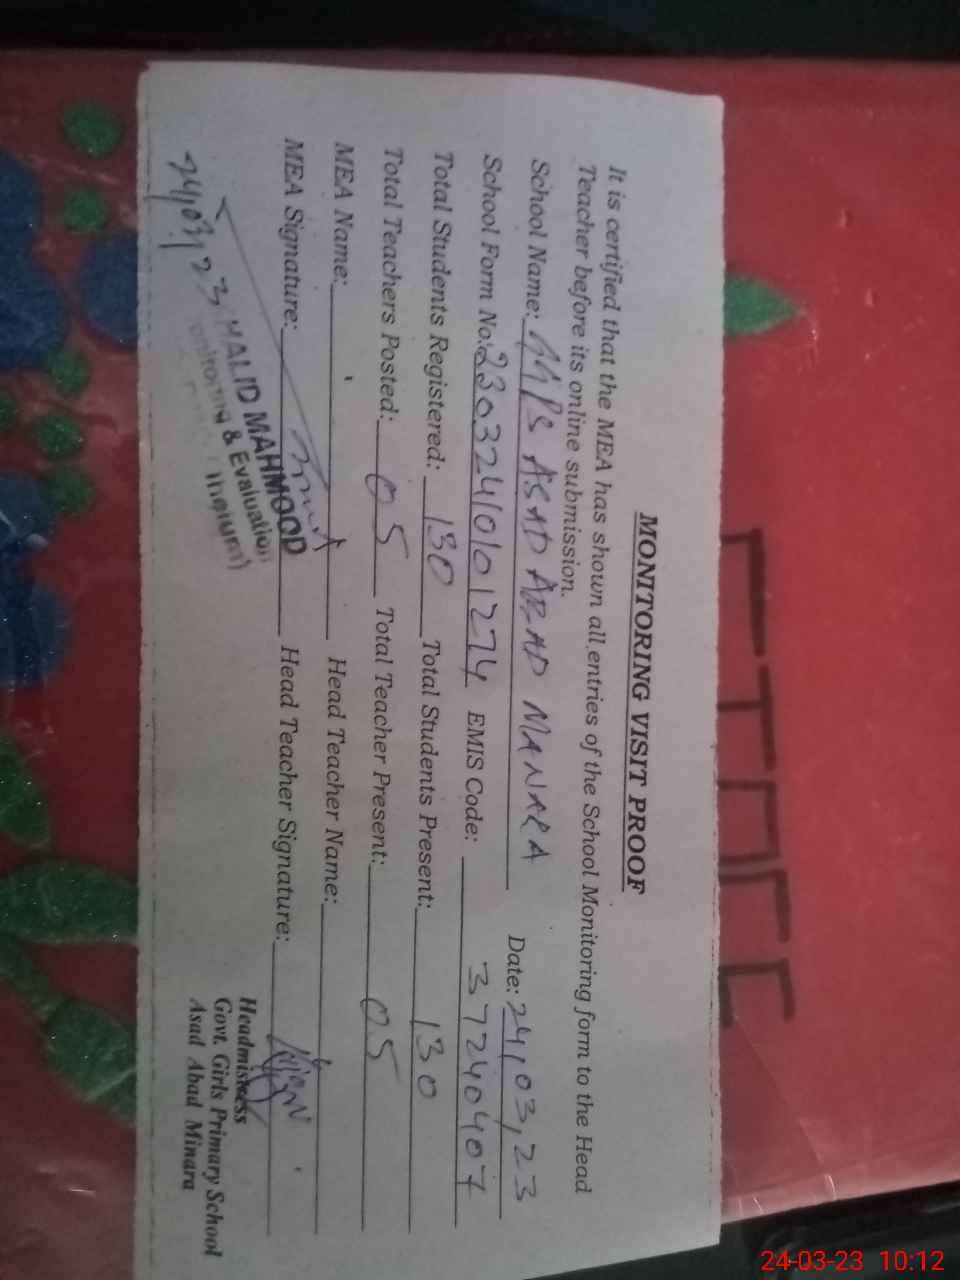 MONITORING VISIT PROOF
It is certified that the MEA has shown all entries of the School Monitoring form to the Head
Teacher before its online submission.
School Name: GGPS ASAD ABAD MANARA Date: 24,03,23
School Form No: 23032410101274 EMIS Code: 37240407
Total Students Registered: 130 Total Students Present: 130
Total Teachers Posted: 05 Total Teacher Present: 05
MEA Name: Head Teacher Name:
MEA Signature: Head Teacher Signature:
24,03,23
HALID MAHMOOD
& Evaluation
Jhelum)
Headmistress
Govt. Girls Primary School
Asad Abad Minara
24-03-23 10:12